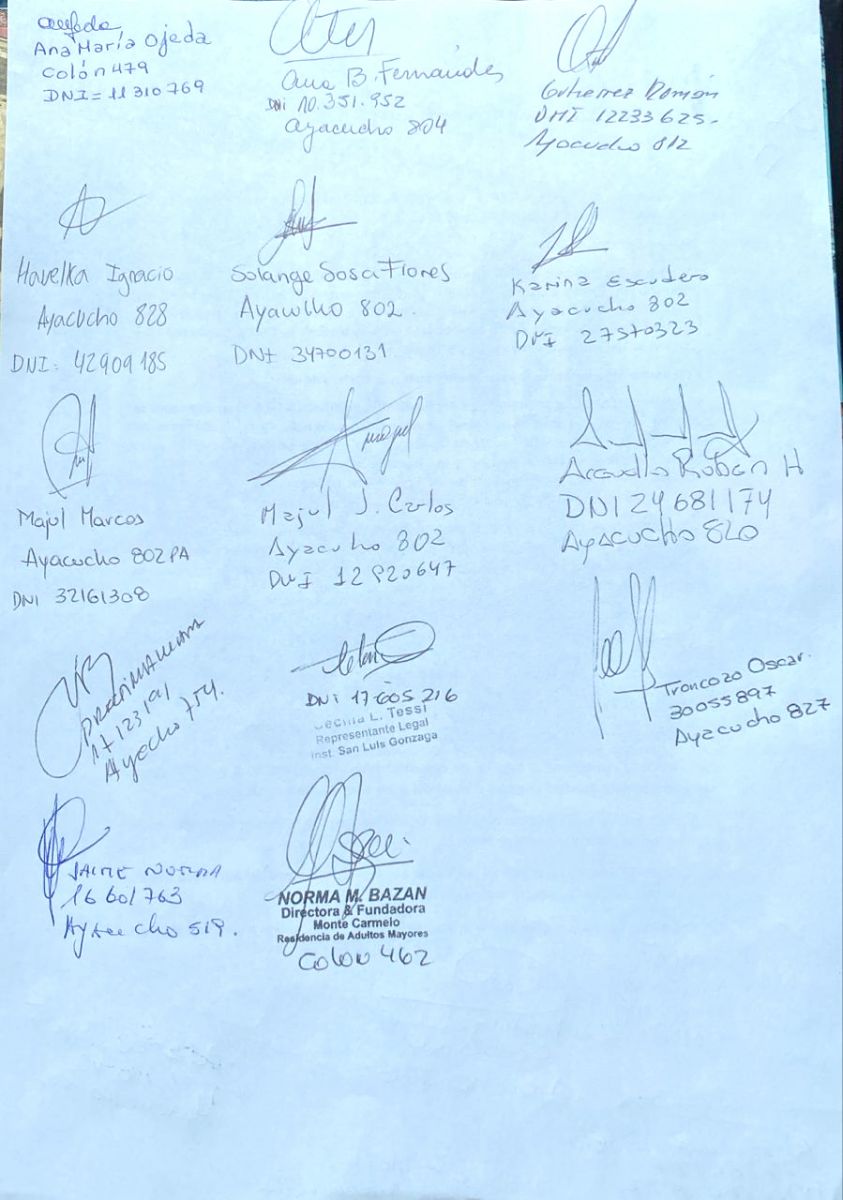 Ana María Ojeda
Colón 479
DNI = 11 310 769
Ana B. Fernandes
DNi 10.351.952
Ayacucho 804
Gutierrez Román
DNI 12233625.
Ayacucho 812
Havelka Ignacio
Ayacucho 828
DNI: 42909185
Solange Sosa Flores
Ayacucho 802.
DNI 34700131
Karina Escudero
Ayacucho 802
DNI 27570323
Majul Marcos
Ayacucho 802 PA
DNI 32161308
Majul J. Carlos
Ayacucho 802
DNI 12920647
Ruben H
DNI 24681174
Ayacucho 820
Ayacho 754.
DNi 17 605 216
Cecilia L. Tessi
Representante Legal
Inst. San Luis Gonzaga
Troncozo Oscar.
30055897
Ayacucho 827
JAIME NORMA
16 601 763
Ayacucho 519.
NORMA M. BAZAN
Directora & Fundadora
Monte Carmelo
Residencia de Adultos Mayores
Colon 462